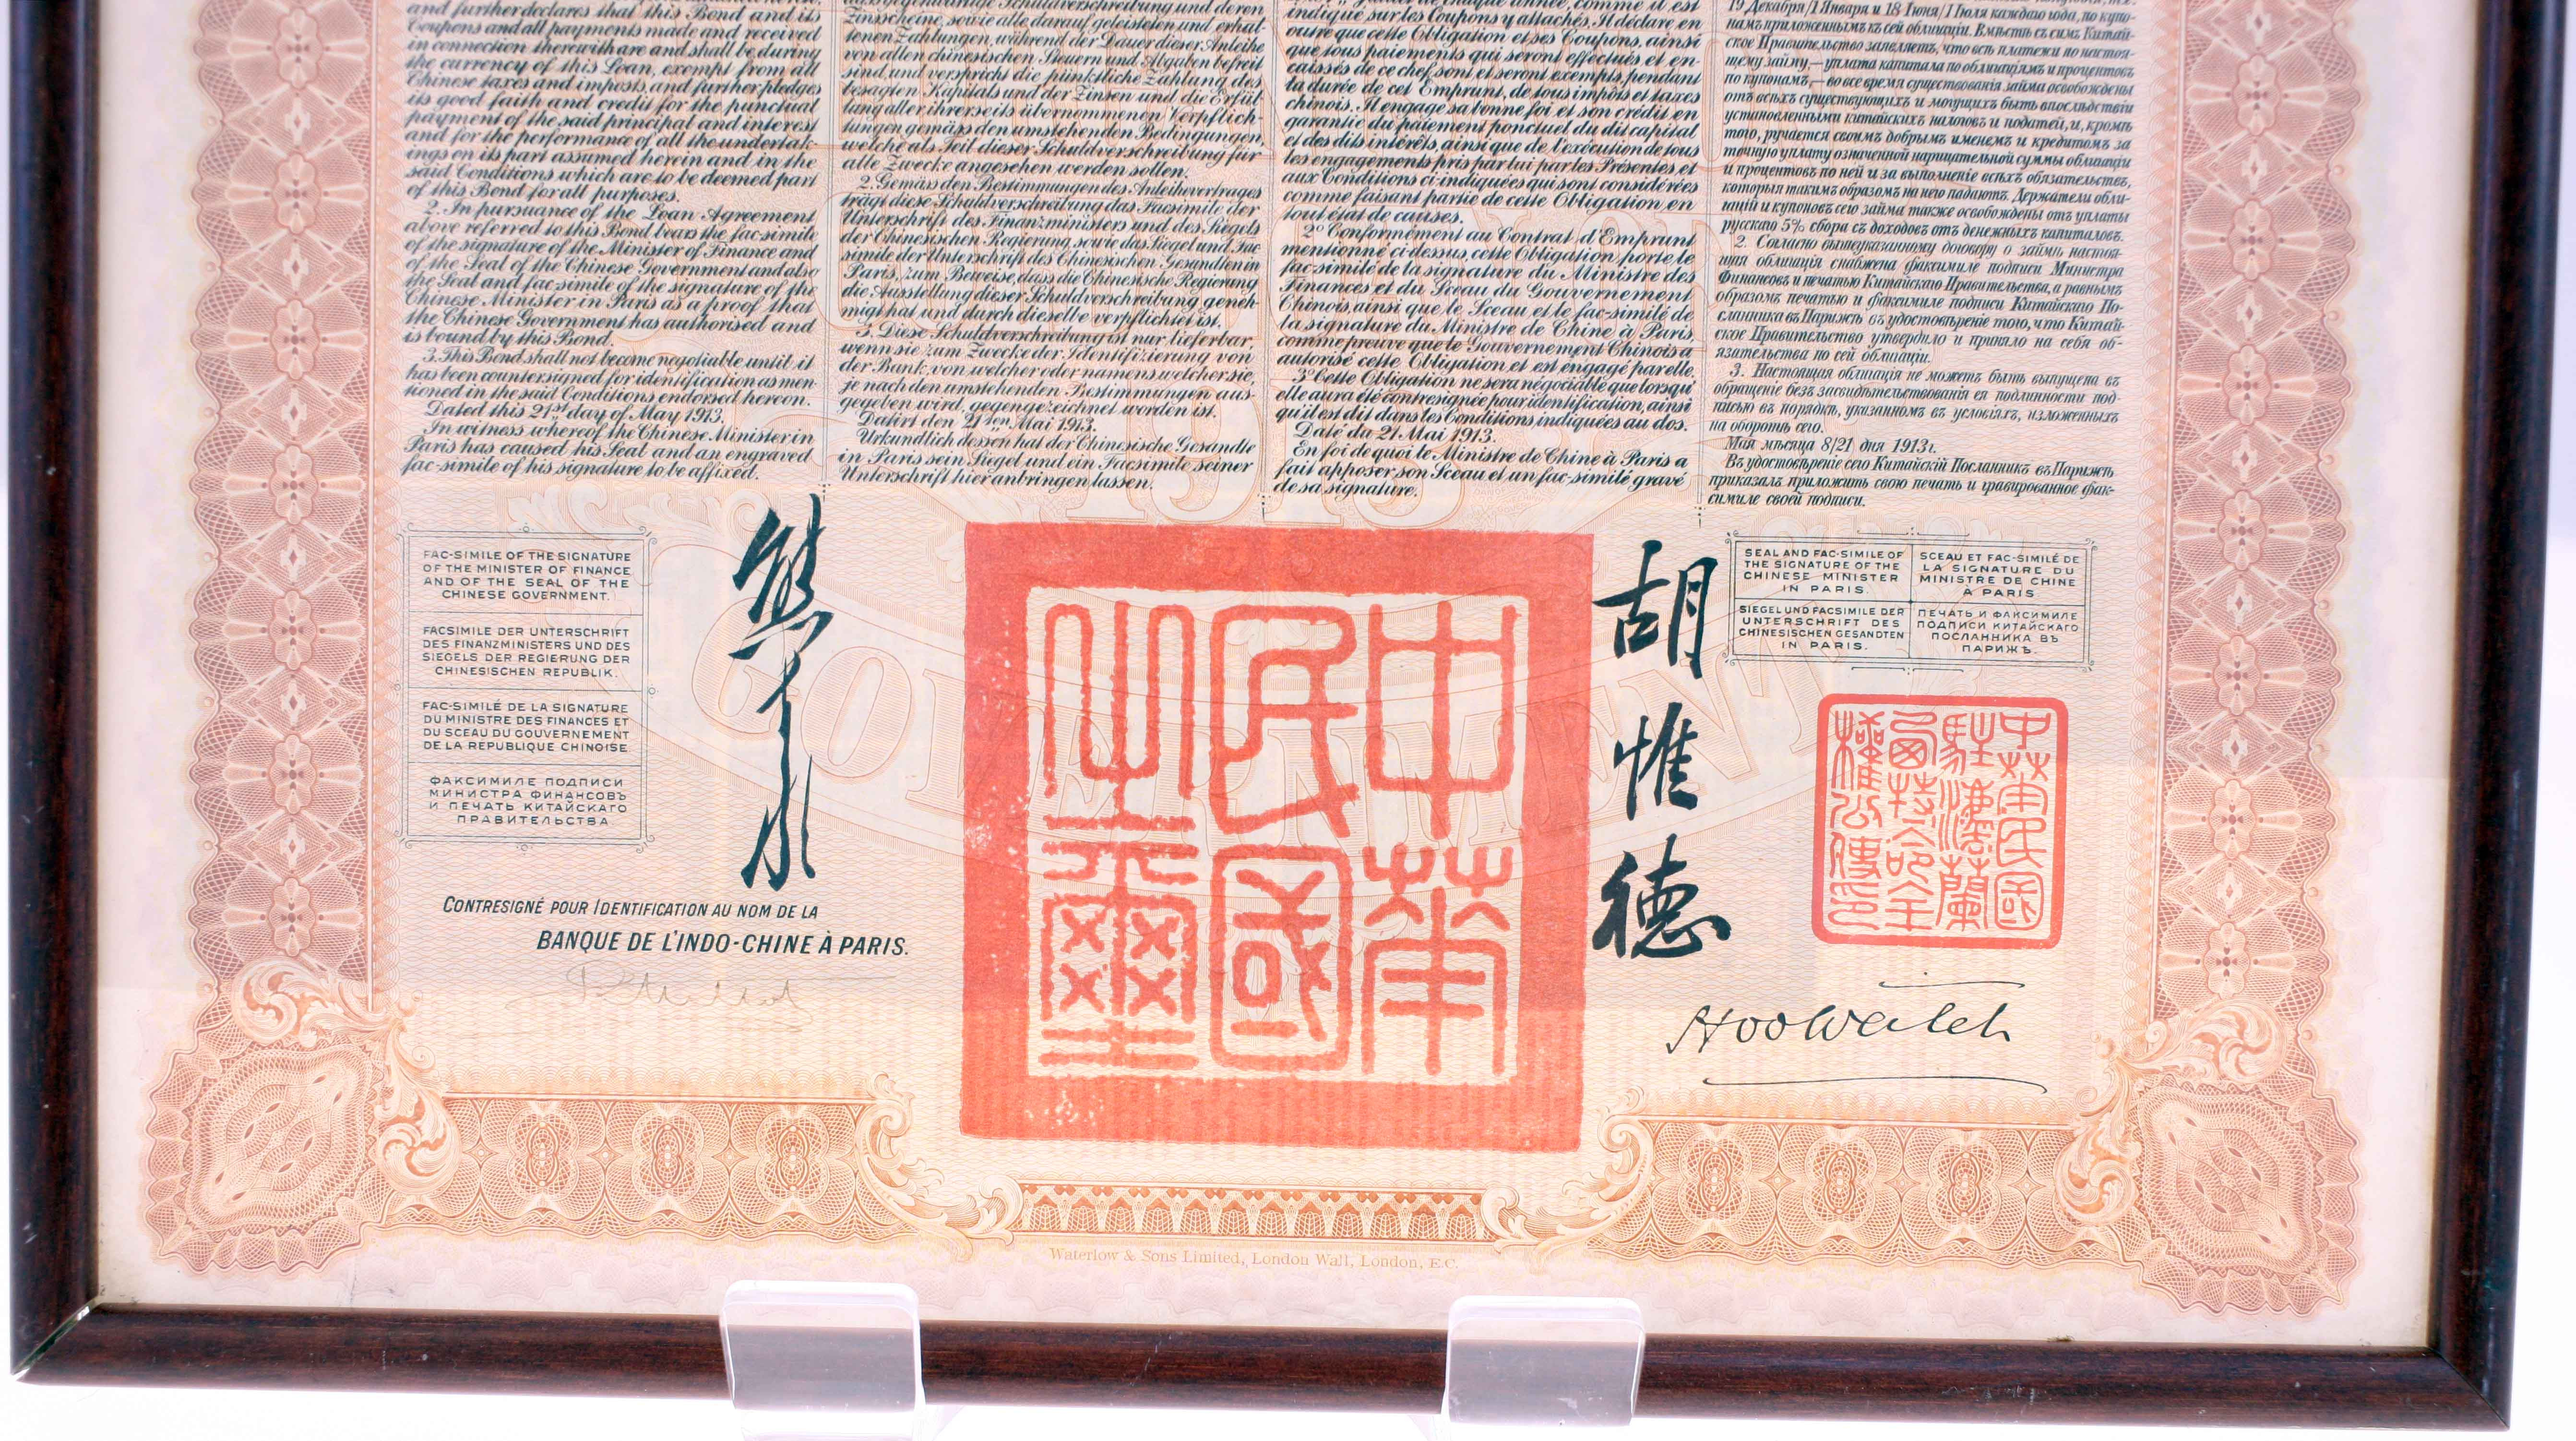 and further declares that this Bond and its
Coupons and all payments made and received
in connection therewith are and shall be, during
the currency of this Loan, exempt from all
Chinese taxes and imposts, and further pledges
its good faith and credit for the punctual
payment of the said principal and interest
and for the performance of all the undertak-
ings on its part assumed herein and in the
said Conditions which are to be deemed part
of this Bond for all purposes.
2. In pursuance of the Loan Agreement
above referred to this Bond bears the fac-simile
of the signature of the Minister of Finance and
of the Seal of the Chinese Government and also
the Seal and fac-simile of the signature of the
Chinese Minister in Paris as a proof that
the Chinese Government has authorised and
is bound by this Bond.
3. This Bond shall not become negotiable until it
has been countersigned for identification as men-
tioned in the said Conditions endorsed hereon.
Dated this 21st day of May 1913.
In witness whereof the Chinese Minister in
Paris has caused his Seal and an engraved
fac-simile of his signature to be affixed.
Zinsscheine, sowie alle darauf geleisteten und erhal-
tenen Zahlungen, während der Dauer dieser Anleihe
von allen chinesischen Steuern und Abgaben befreit
sind, und verspricht die pünktliche Zahlung des
besagten Kapitals und der Zinsen und die Erfül-
lung aller ihrerseits übernommenen Verpflich-
tungen gemäss den umstehenden Bedingungen,
welche als Teil dieser Schuldverschreibung für
alle Zwecke angesehen werden sollen.
2. Gemäss den Bestimmungen des Anleihevertrages
trägt diese Schuldverschreibung das Facsimile der
Unterschrift des Finanzministers und des Siegels
der Chinesischen Regierung, sowie das Siegel und Fac
simile der Unterschrift des Chinesischen Gesandten in
Paris, zum Beweise, dass die Chinesische Regierung
die Ausstellung dieser Schuldverschreibung geneh-
migt hat und durch dieselbe verpflichtet ist.
3. Diese Schuldverschreibung ist nur lieferbar,
wenn sie zum Zwecke der Identifizierung von
der Bank, von welcher oder namens welcher sie,
je nach den umstehenden Bestimmungen aus-
gegeben wird, gegengezeichnet worden ist.
Datirt den 21ten Mai 1913.
Urkundlich dessen hat der Chinesische Gesandte
in Paris sein Siegel und ein Facsimile seiner
Unterschrift hier anbringen lassen.
indiqué sur les Coupons y attachés. Il déclare en
outre que cette Obligation et ses Coupons, ainsi
que tous paiements qui seront effectués et en-
caissés de ce chef, sont et seront exempts, pendant
la durée de cet Emprunt, de tous impôts et taxes
chinois. Il engage sa bonne foi et son crédit en
garantie du paiement ponctuel du dit capital
et des dits intérêts, ainsi que de l'exécution de tous
les engagements pris par lui par les Présentes et
aux Conditions ci-indiquées qui sont considérées
comme faisant partie de cette Obligation en
tout état de causes.
2º Conformément au Contrat d'Emprunt
mentionné ci-dessus, cette Obligation porte le
fac-similé de la signature du Ministre des
Finances et du Sceau du Gouvernement
Chinois, ainsi que le Sceau et le fac-similé de
la signature du Ministre de Chine à Paris,
comme preuve que le Gouvernement Chinois a
autorisé cette Obligation et est engagé par elle.
3º Cette Obligation ne sera négociable que lorsqu'
elle aura été contresignée pour identification, ainsi
qu'il est dit dans les Conditions indiquées au dos.
Daté du 21 Mai 1913.
En foi de quoi le Ministre de Chine à Paris a
fait apposer son Sceau et un fac-similé gravé
de sa signature.
19 Декабря/1 Января и 18 Іюня/1 Іюля каждаго года, по купо-
намъ приложеннымъ къ сей облигаціи. Вмѣстѣ съ симъ Китай-
ское Правительство заявляетъ, что всѣ платежи по настоя-
щему займу,—уплата капитала по облигаціямъ и процентовъ
по купонамъ,—во все время существованія займа освобождены
отъ всѣхъ существующихъ и могущихъ быть впослѣдствіи
установленными китайскихъ налоговъ и податей, и, кромѣ
того, ручается своимъ добрымъ именемъ и кредитомъ за
точную уплату означенной нарицательной суммы облигаціи
и процентовъ по ней и за выполненіе всѣхъ обязательствъ,
которыя такимъ образомъ на него падаютъ. Держатели обли-
гацій и купоновъ сего займа также освобождены отъ уплаты
русскаго 5% сбора съ доходовъ отъ денежныхъ капиталовъ.
2. Согласно вышеуказанному договору о займѣ настоя-
щая облигація снабжена факсимиле подписи Министра
Финансовъ и печатью Китайскаго Правительства, а равнымъ
образомъ печатью и факсимиле подписи Китайскаго По-
сланника въ Парижѣ въ удостовѣреніе того, что Китай-
ское Правительство утвердило и приняло на себя об-
язательства по сей облигаціи.
3. Настоящая облигація не можетъ быть выпущена въ
обращеніе безъ засвидѣтельствованія ея подлинности под-
писью въ порядкѣ, указанномъ въ условіяхъ, изложенныхъ
на оборотѣ сего.
Мая мѣсяца 8/21 дня 1913 г.
Въ удостовѣреніе сего Китайскій Посланникъ въ Парижѣ
приказалъ приложить свою печать и гравированное фак-
симиле своей подписи.
FAC-SIMILE OF THE SIGNATURE
OF THE MINISTER OF FINANCE
AND OF THE SEAL OF THE
CHINESE GOVERNMENT.
FACSIMILE DER UNTERSCHRIFT
DES FINANZMINISTERS UND DES
SIEGELS DER REGIERUNG DER
CHINESISCHEN REPUBLIK.
FAC-SIMILÉ DE LA SIGNATURE
DU MINISTRE DES FINANCES ET
DU SCEAU DU GOUVERNEMENT
DE LA REPUBLIQUE CHINOISE
ФАКСИМИЛЕ ПОДПИСИ
МИНИСТРА ФИНАНСОВЪ
И ПЕЧАТЬ КИТАЙСКАГО
ПРАВИТЕЛЬСТВА
中華
民國
之璽
胡惟德
SEAL AND FAC-SIMILE OF
THE SIGNATURE OF THE
CHINESE MINISTER
IN PARIS.
SCEAU ET FAC-SIMILÉ DE
LA SIGNATURE DU
MINISTRE DE CHINE
À PARIS
SIEGEL UND FACSIMILE DER
UNTERSCHRIFT DES
CHINESISCHEN GESANDTEN
IN PARIS.
ПЕЧАТЬ И ФАКСИМИЛЕ
ПОДПИСИ КИТАЙСКАГО
ПОСЛАННИКА ВЪ
ПАРИЖѢ.
1913
GOVERNMENT
CONTRESIGNÉ POUR IDENTIFICATION AU NOM DE LA
BANQUE DE L'INDO-CHINE À PARIS.
Hoo Wei Teh
Waterlow & Sons Limited, London Wall, London, E.C.